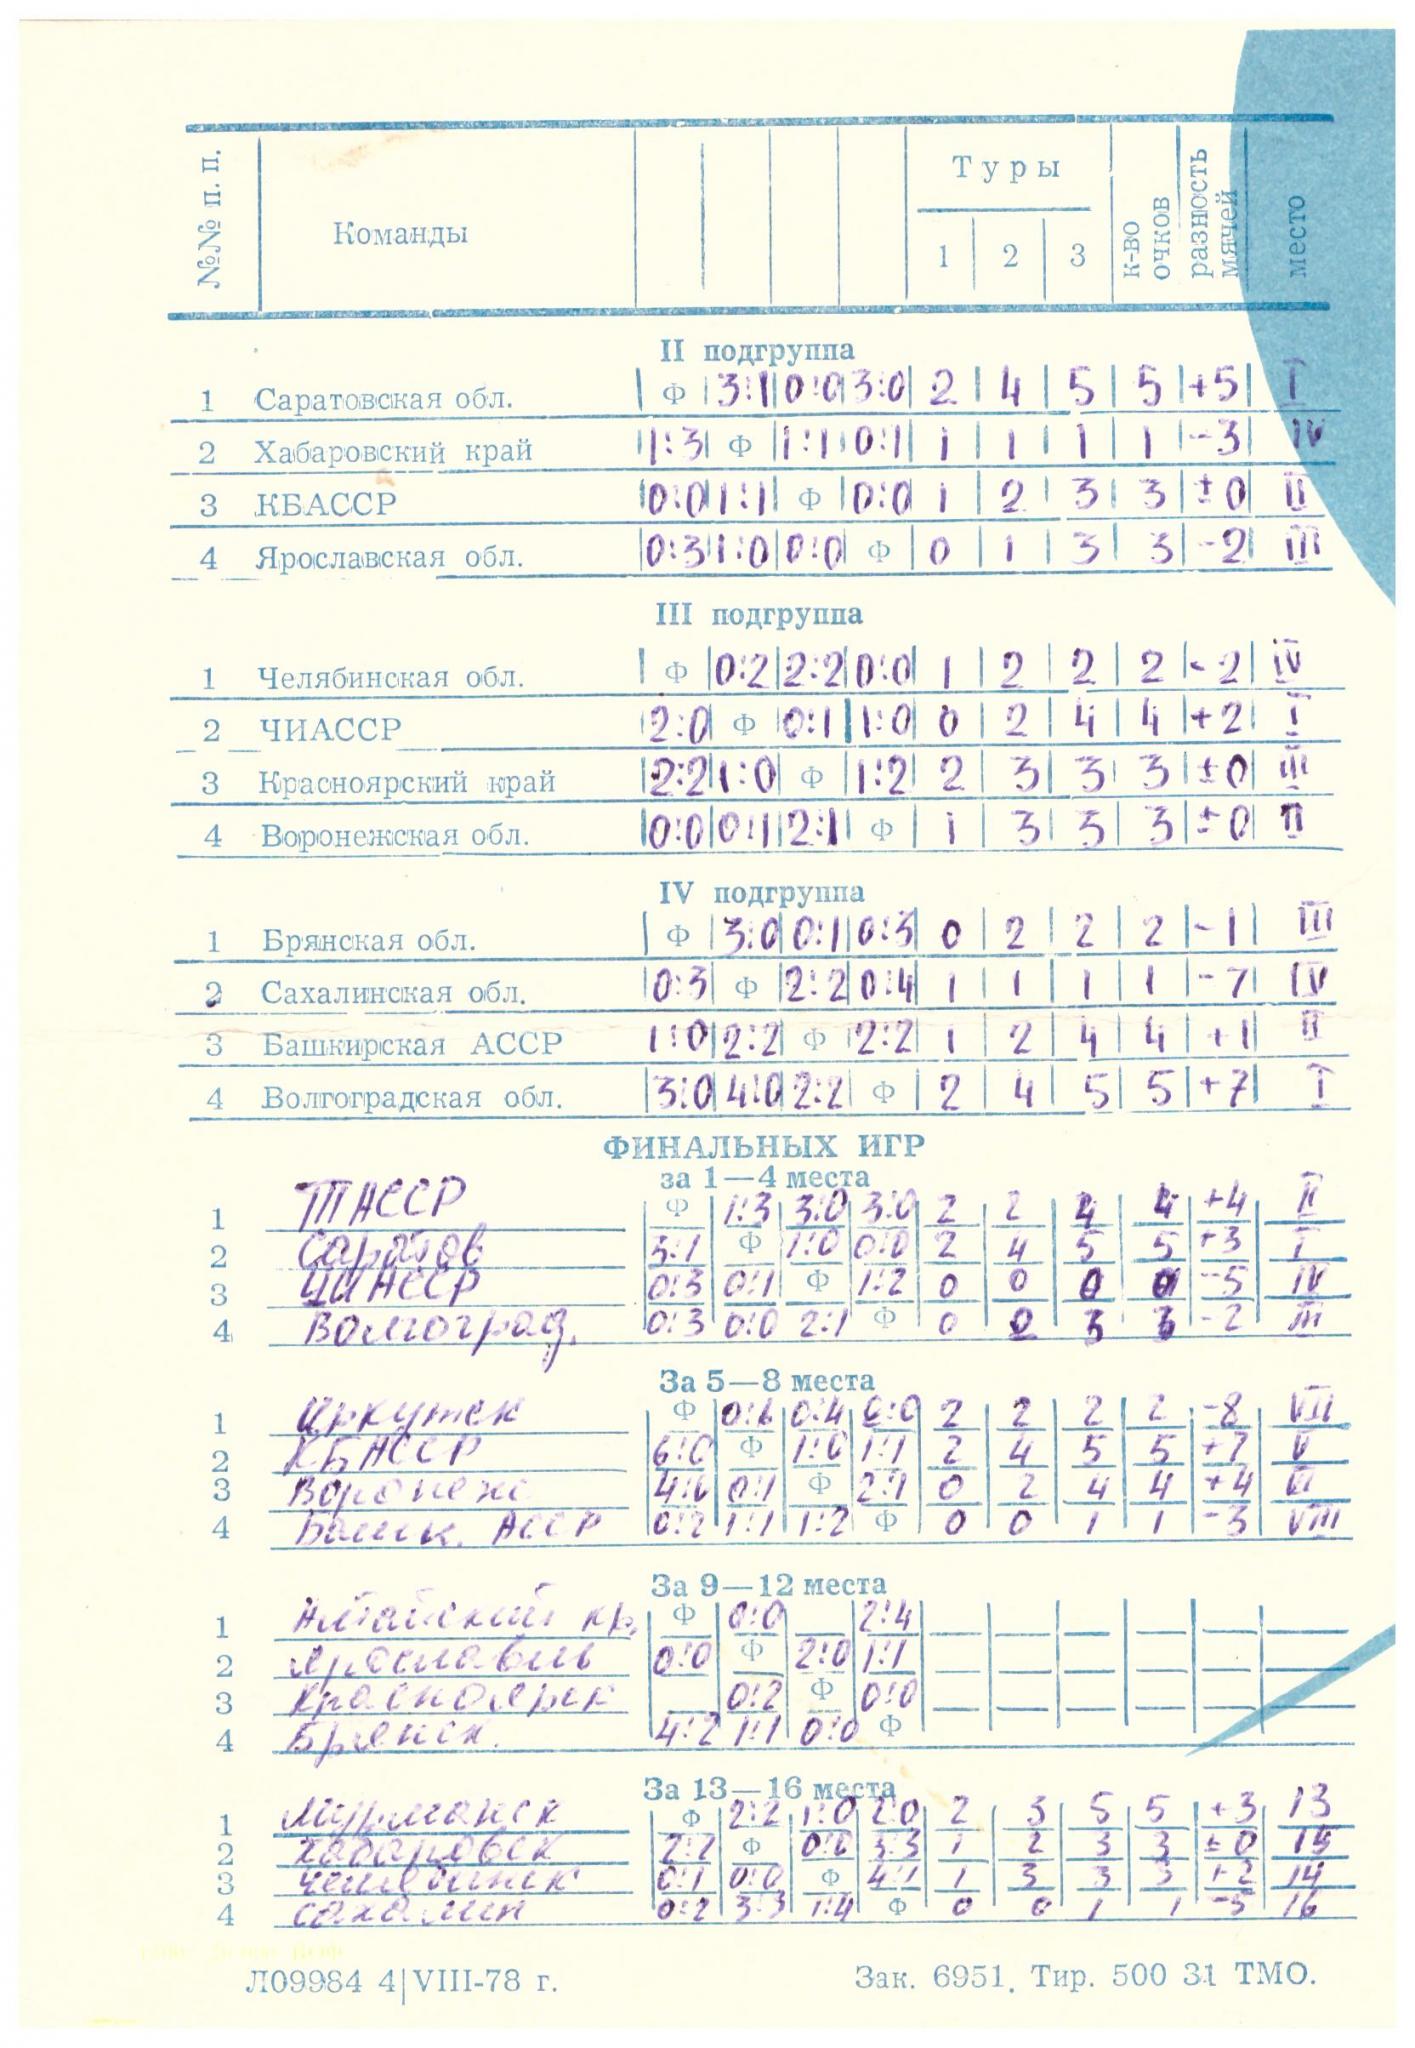 №№ п. п. Команды Туры к-во очков разность мячей место
1 2 3
II подгруппа
1 Саратовская обл. Ф 3:1 0:0 3:0 2 4 5 5 +5 I
2 Хабаровский край 1:3 Ф 1:1 0:1 1 1 1 1 -3 IV
3 КБАССР 0:0 1:1 Ф 0:0 1 2 3 3 ±0 II
4 Ярославская обл. 0:3 1:0 0:0 Ф 0 1 3 3 -2 III
III подгруппа
1 Челябинская обл. Ф 0:2 2:2 0:0 1 2 2 2 -2 IV
2 ЧИАССР 2:0 Ф 0:1 1:0 0 2 4 4 +2 I
3 Красноярский край 2:2 1:0 Ф 1:2 2 3 3 3 ±0 III
4 Воронежская обл. 0:0 0:1 2:1 Ф 1 3 3 3 ±0 II
IV подгруппа
1 Брянская обл. Ф 3:0 0:1 0:3 0 2 2 2 -1 III
2 Сахалинская обл. 0:3 Ф 2:2 0:4 1 1 1 1 -7 IV
3 Башкирская АССР 1:0 2:2 Ф 2:2 1 2 4 4 +1 II
4 Волгоградская обл. 3:0 4:0 2:2 Ф 2 4 5 5 +7 I
ФИНАЛЬНЫХ ИГР
за 1—4 места
1 ТАССР Ф 1:3 3:0 3:0 2 2 4 4 +4 II
2 Саратов 3:1 Ф 1:0 0:0 2 4 5 5 +3 I
3 ЧИАССР 0:3 0:1 Ф 1:2 0 0 0 0 -5 IV
4 Волгоград. 0:3 0:0 2:1 Ф 0 0 3 3 -2 III
За 5—8 места
1 Иркутск Ф 0:6 0:4 0:0 2 2 2 2 -8 VII
2 КБАССР 6:0 Ф 1:0 1:1 2 4 5 5 +7 V
3 Воронеж 0:1 Ф 2:1 0 2 4 4 +4 VI
4 Башк. АССР 0:2 1:1 1:2 Ф 0 0 1 1 -3 VIII
За 9—12 места
1 Алтайский кр. Ф 0:0 2:4
2 Ярославль 0:0 Ф 2:0 1:1
3 Красноярск 0:2 Ф 0:0
4 Брянск. 4:2 1:1 0:0 Ф
За 13—16 места
1 Мурманск Ф 2:2 1:0 2:0 2 3 5 5 +3 13
2 Хабаровск 2:2 Ф 0:0 3:3 1 2 3 3 ±0 15
3 Челябинск 0:1 0:0 Ф 4:1 1 3 3 3 +2 14
4 Сахалин 0:2 3:3 1:4 Ф 0 0 1 1 -5 16
Л09984 4|VIII-78 г. Зак. 6951. Тир. 500 31 ТМО.